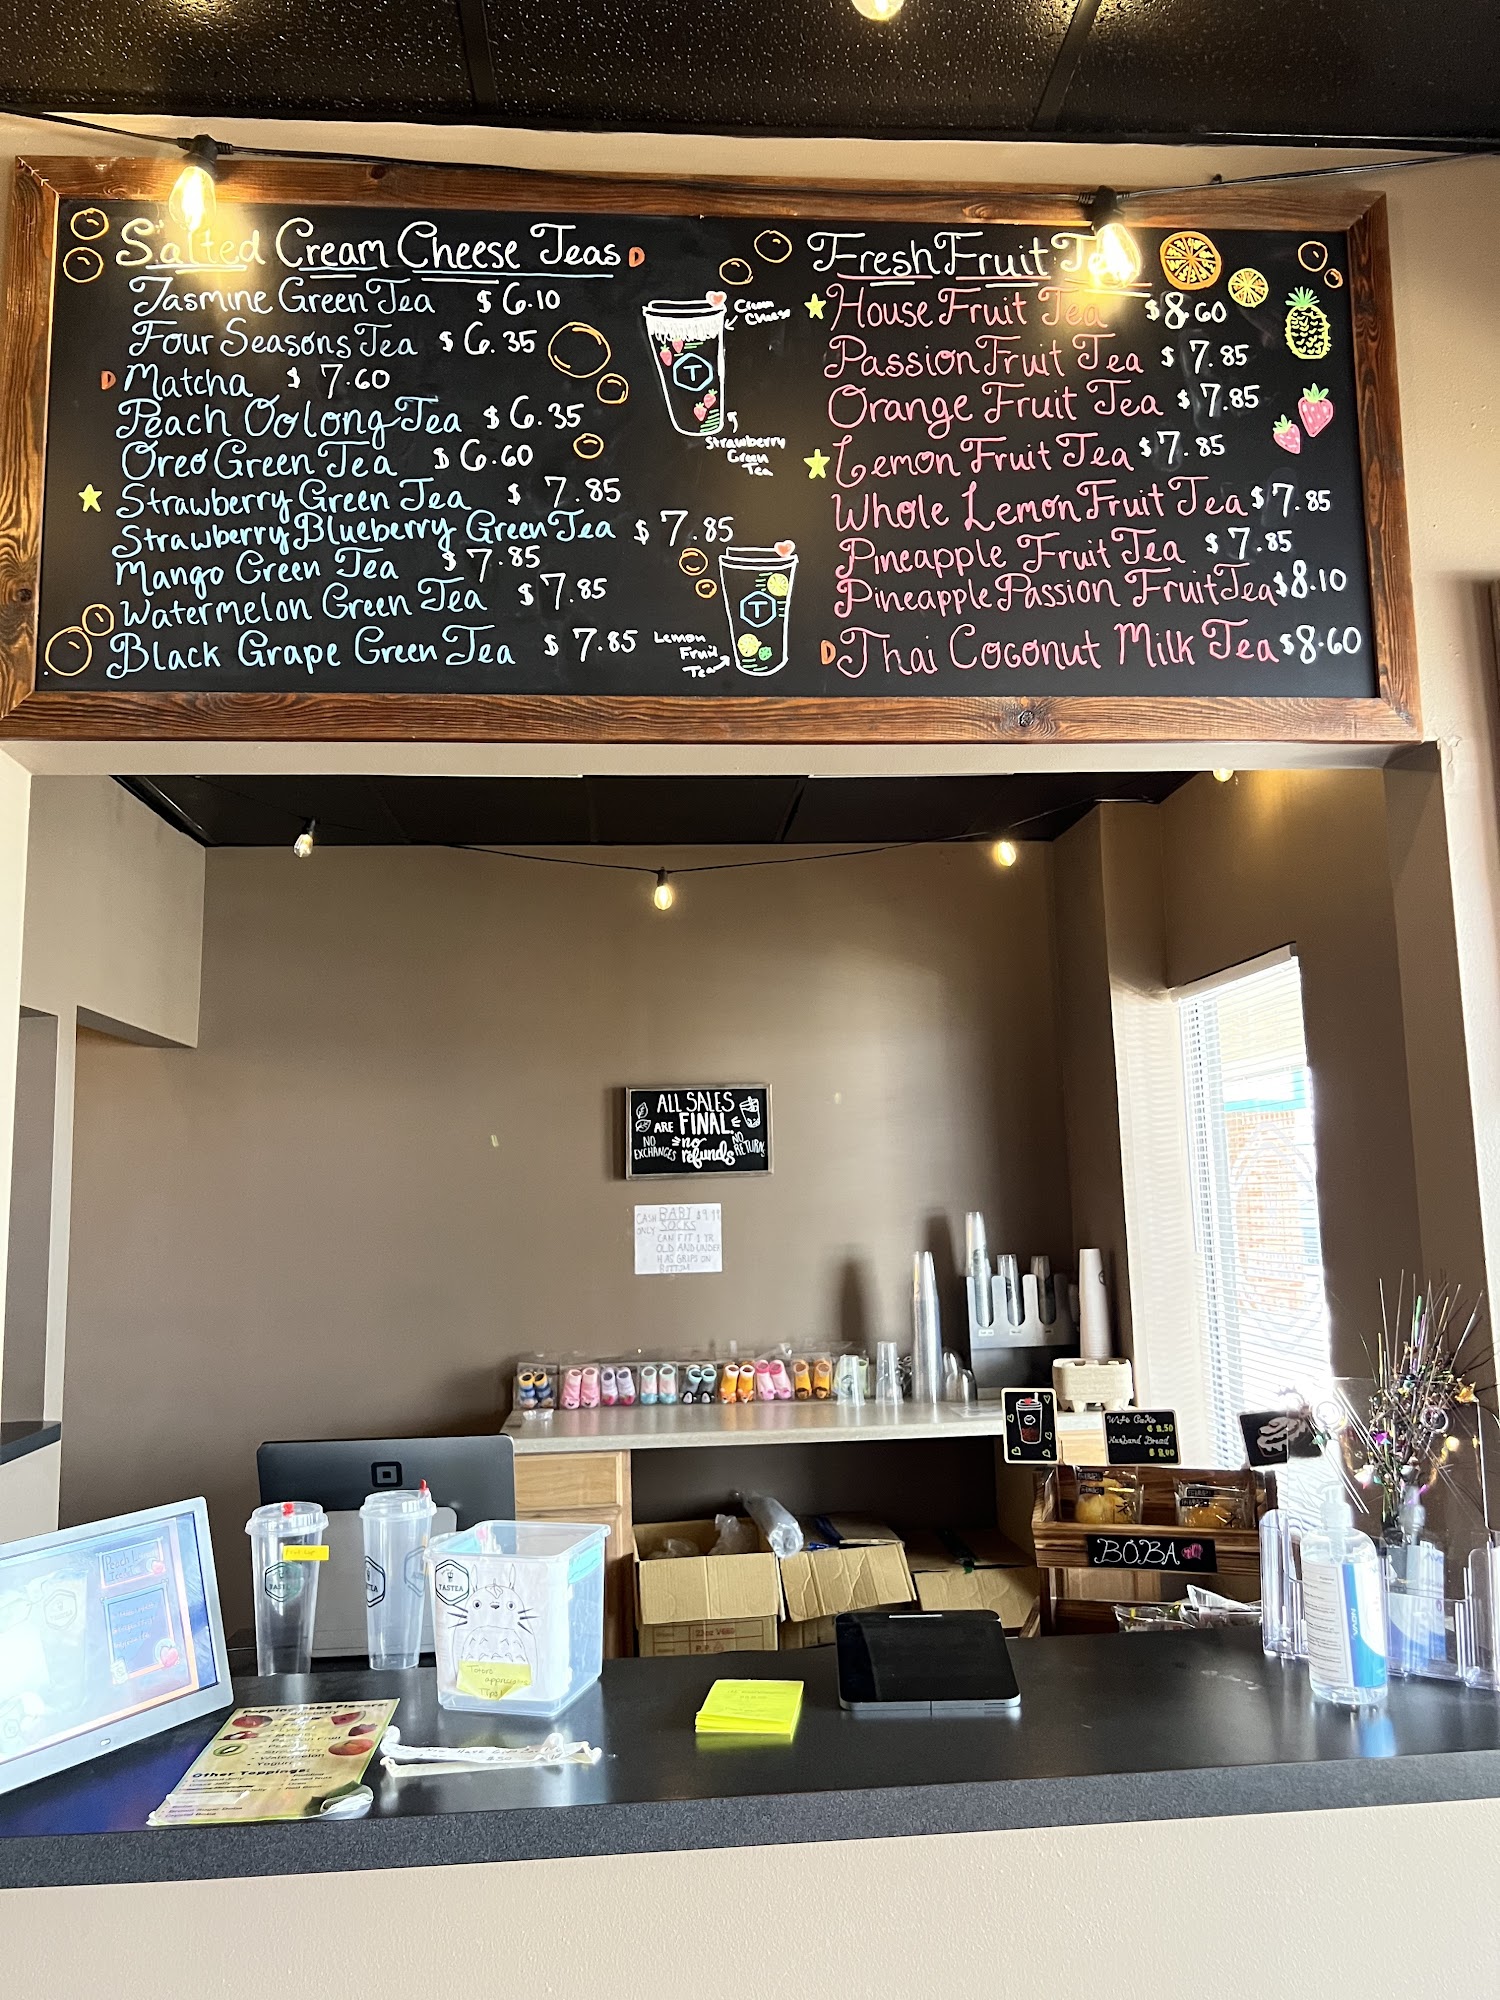 Salted Cream Cheese Teas D
Jasmine Green Tea $6.10
Four Seasons Tea $6.35
D Matcha $7.60
Peach Oolong Tea $6.35
Oreo Green Tea $6.60
Strawberry Green Tea $7.85
Strawberry Blueberry Green Tea $7.85
Mango Green Tea $7.85
Watermelon Green Tea $7.85
Black Grape Green Tea $7.85
Cream
Cheese
T
Strawberry
Green
Tea
T
Lemon
Fruit
Tea
Fresh Fruit
House Fruit Tea $8.60
Passion Fruit Tea $7.85
Orange Fruit Tea $7.85
Lemon Fruit Tea $7.85
Whole Lemon Fruit Tea $7.85
Pineapple Fruit Tea $7.85
Pineapple Passion Fruit Tea $8.10
D Thai Coconut Milk Tea $8.60
ALL SALES
ARE FINAL.
NO EXCHANGES
no refunds
NO RETURNS
CASH ONLY
BABY SOCKS
CAN FIT 1 YR
OLD AND UNDER
HAS GRIPS ON
BOTTOM
Wife Cake
Husband Bread
BOBA
TASTEA
Totoro
appreciates
Tips!
Popping Boba Flavors:
Strawberry
Watermelon
Yogurt
Other Toppings: